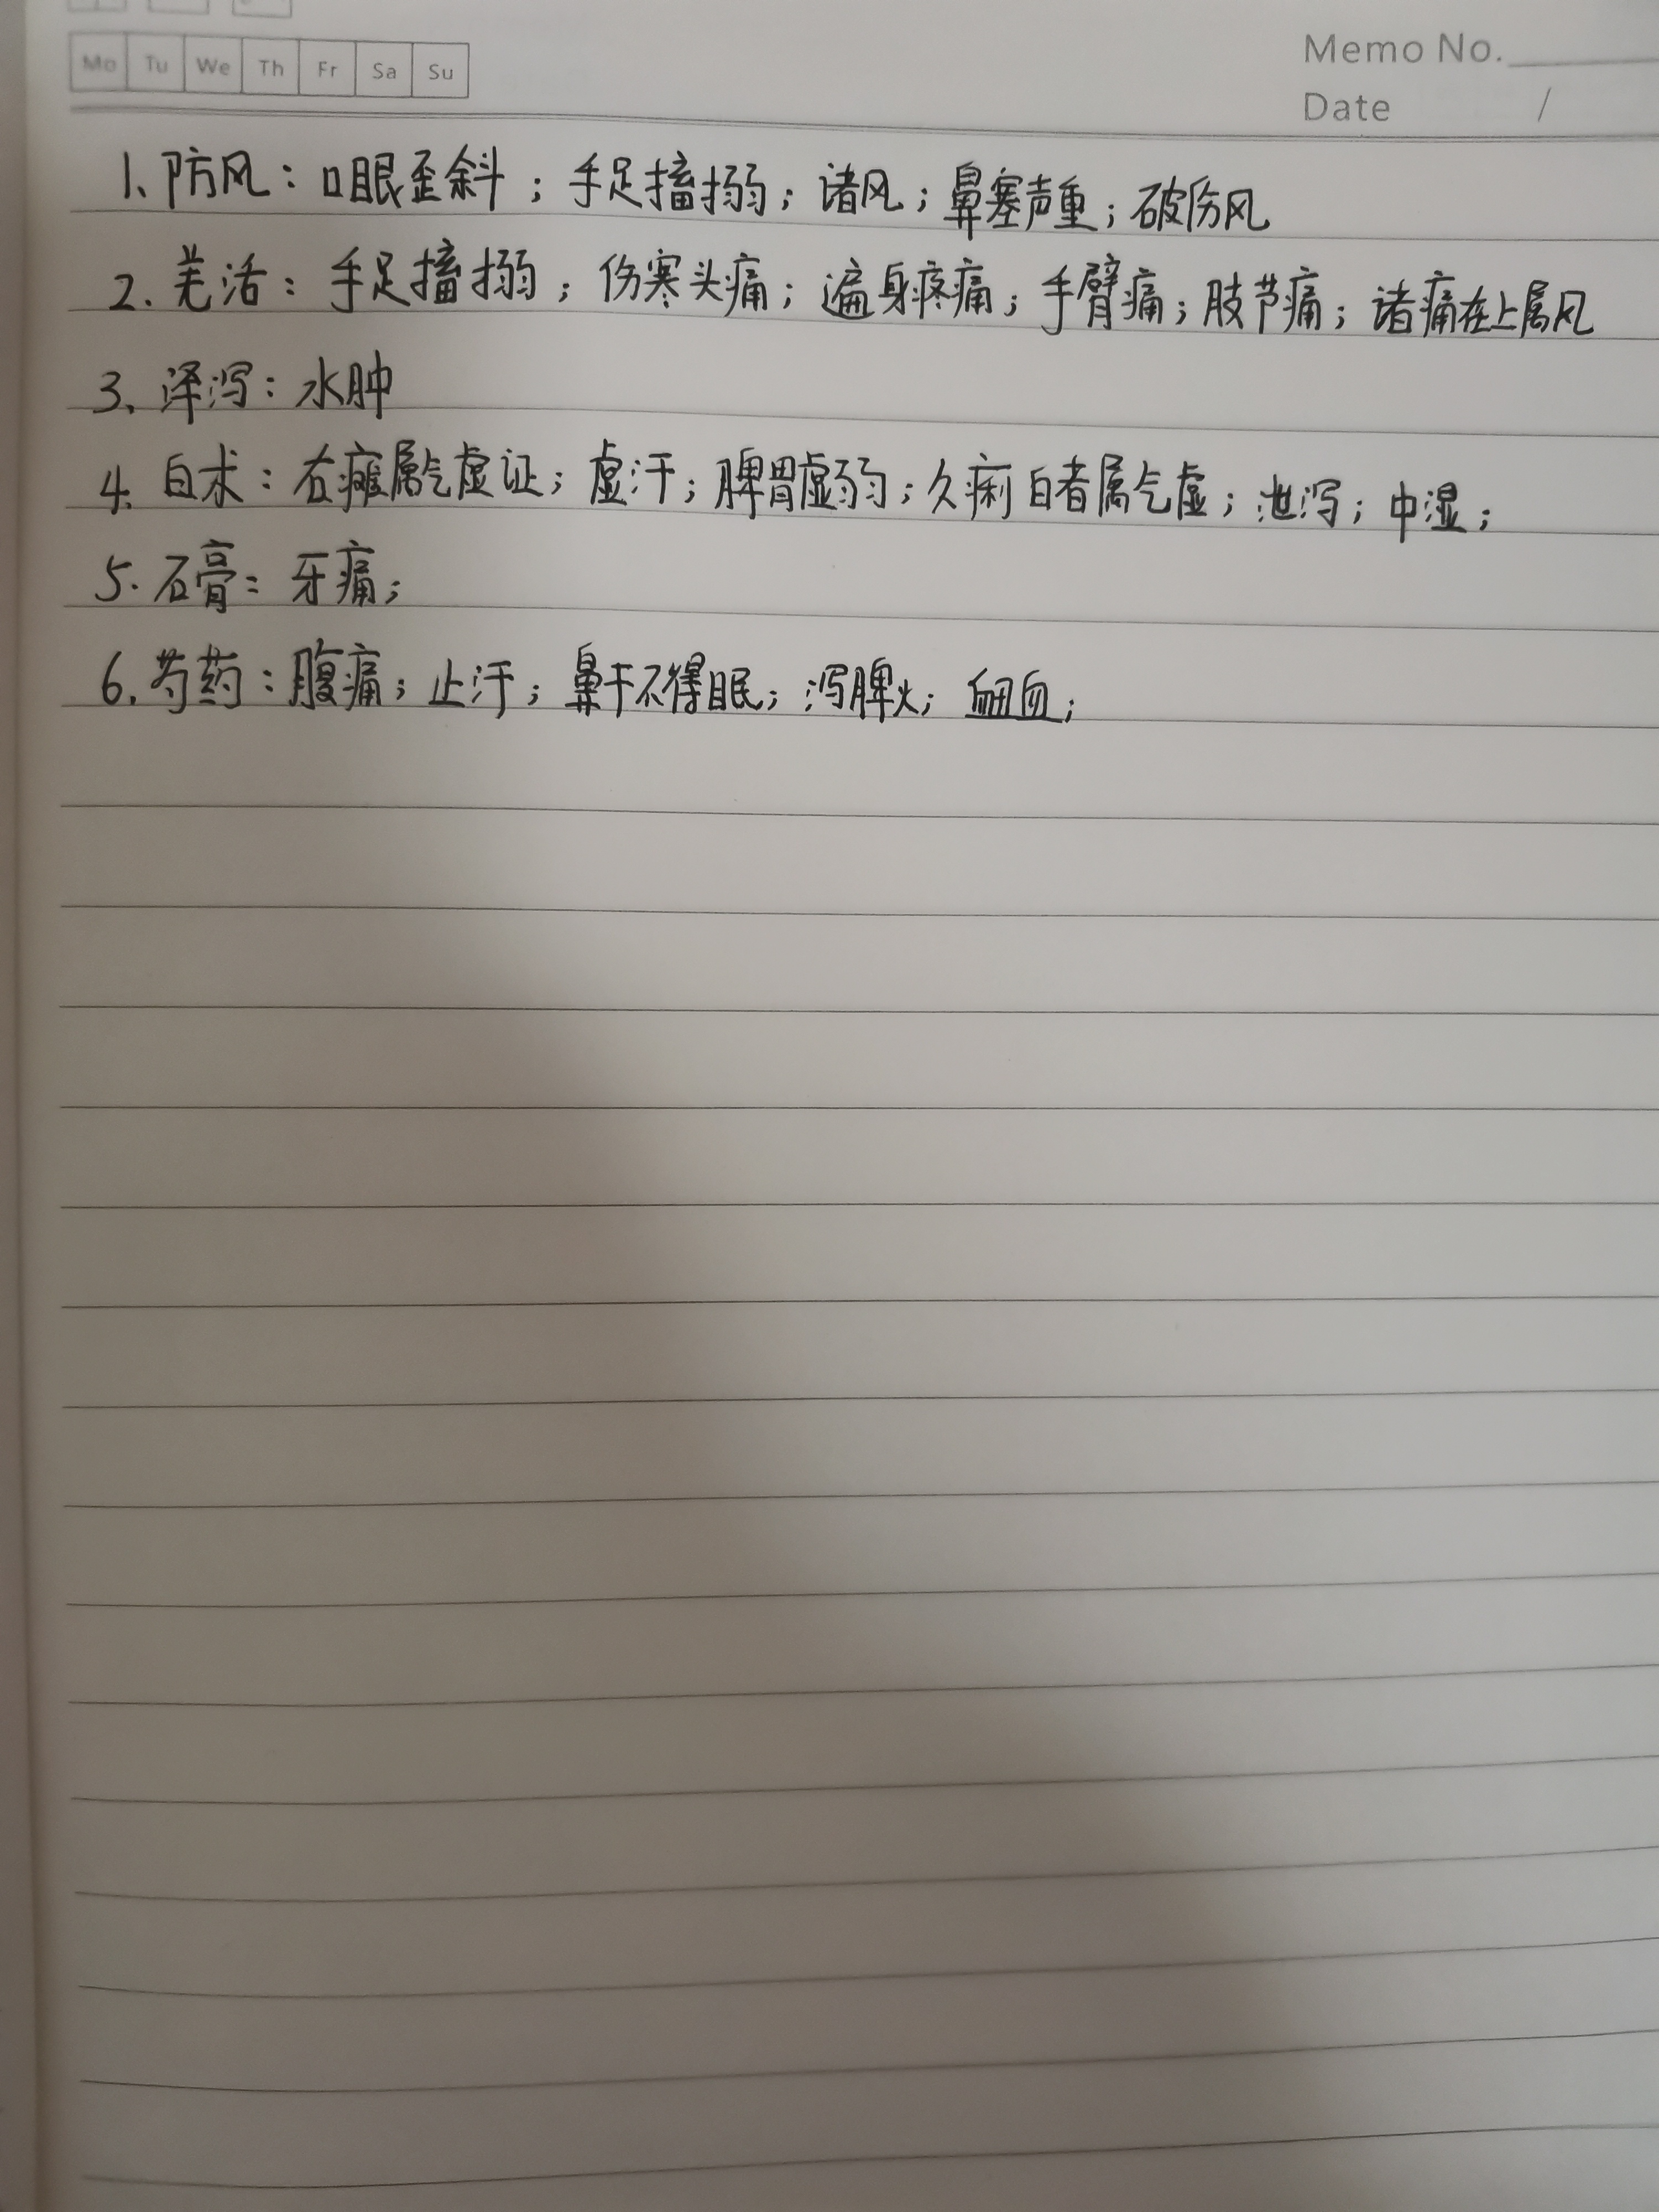 Mo Tu We Th Fr Sa Su
Memo No.
Date /
1、防风：口眼歪斜；手足搐搦；诸风；鼻塞声重；破伤风
2. 羌活：手足搐搦；伤寒头痛；遍身疼痛；手臂痛；肢节痛；诸痛在上属风
3、泽泻：水肿
4. 白术：右瘫属气虚证；虚汗；脾胃虚弱；久痢白者属气虚；泄泻；中湿；
5. 石膏：牙痛；
6. 芍药：腹痛；止汗；鼻干不得眠；泻脾火；衄血；